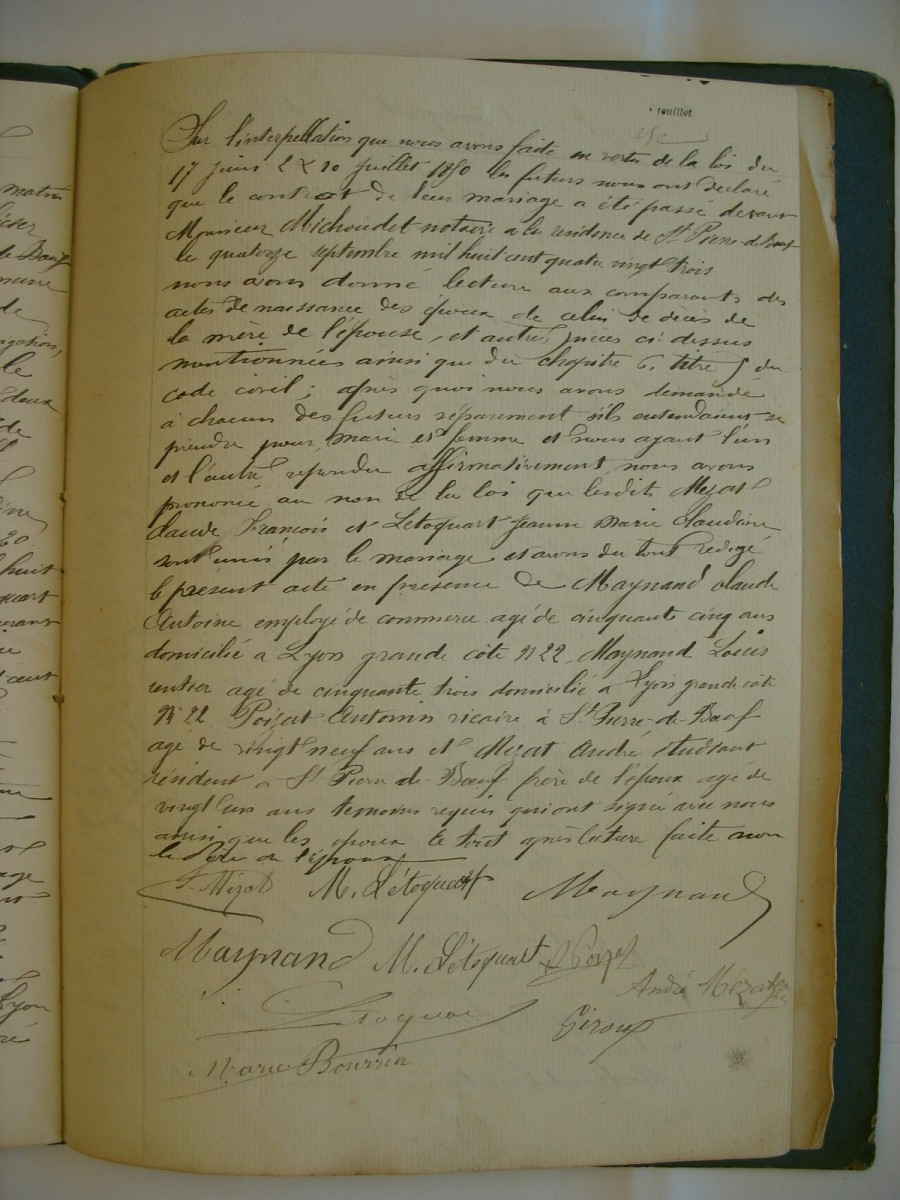 feuillet
Sur l'interpellation que nous avons faite en vertu de la loi du
17 juin 2 & 10 juillet 1850 les futurs nous ont déclaré
que le contrat de leur mariage a été passé devant
Monsieur Michoudet notaire a la résidence de St Pierre-de-Bœuf
le quatorze septembre mil huit cent quatre vingt trois
nous avons donné lecture aux comparants des
actes de naissance des époux de celui de décès de
la mère de l'épouse, et autres pièces ci-dessus
mentionnées ainsi que du chapitre 6. titre 5 du
code civil; après quoi nous avons demandé
à chacun des futurs séparement s'ils entendaient se
prendre pour mari et femme et nous ayant l'un
et l'autre répondu affirmativement nous avons
prononcé au nom de la loi que lesdits Mezat
Claude François et Letoquart Jeanne Marie Claudine
sont unis par le mariage et avons du tout rédigé
le présent acte en présence de Maynand Claude
Antoine employé de commerce agé de cinquante cinq ans
domicilié a Lyon grande côte N 22, Maynand Louis
rentier agé de cinquante trois domicilié a Lyon grande côte
N° 22 Poizat Antonin vicaire à St Pierre-de-Bœuf
agé de vingt neuf ans et Mezat André étudiant
résident a St Pierre-de-Bœuf frère de l'époux agé de
vingt un ans temoins requis qui ont signé avec nous
ainsi que les époux le tout après lecture faite non
le père de l'époux
Mézat M. Létoquart Maynand
Maynand M. Létoquart Poizat
André Mézat
Letoquart Giroux
Marie Bourrin